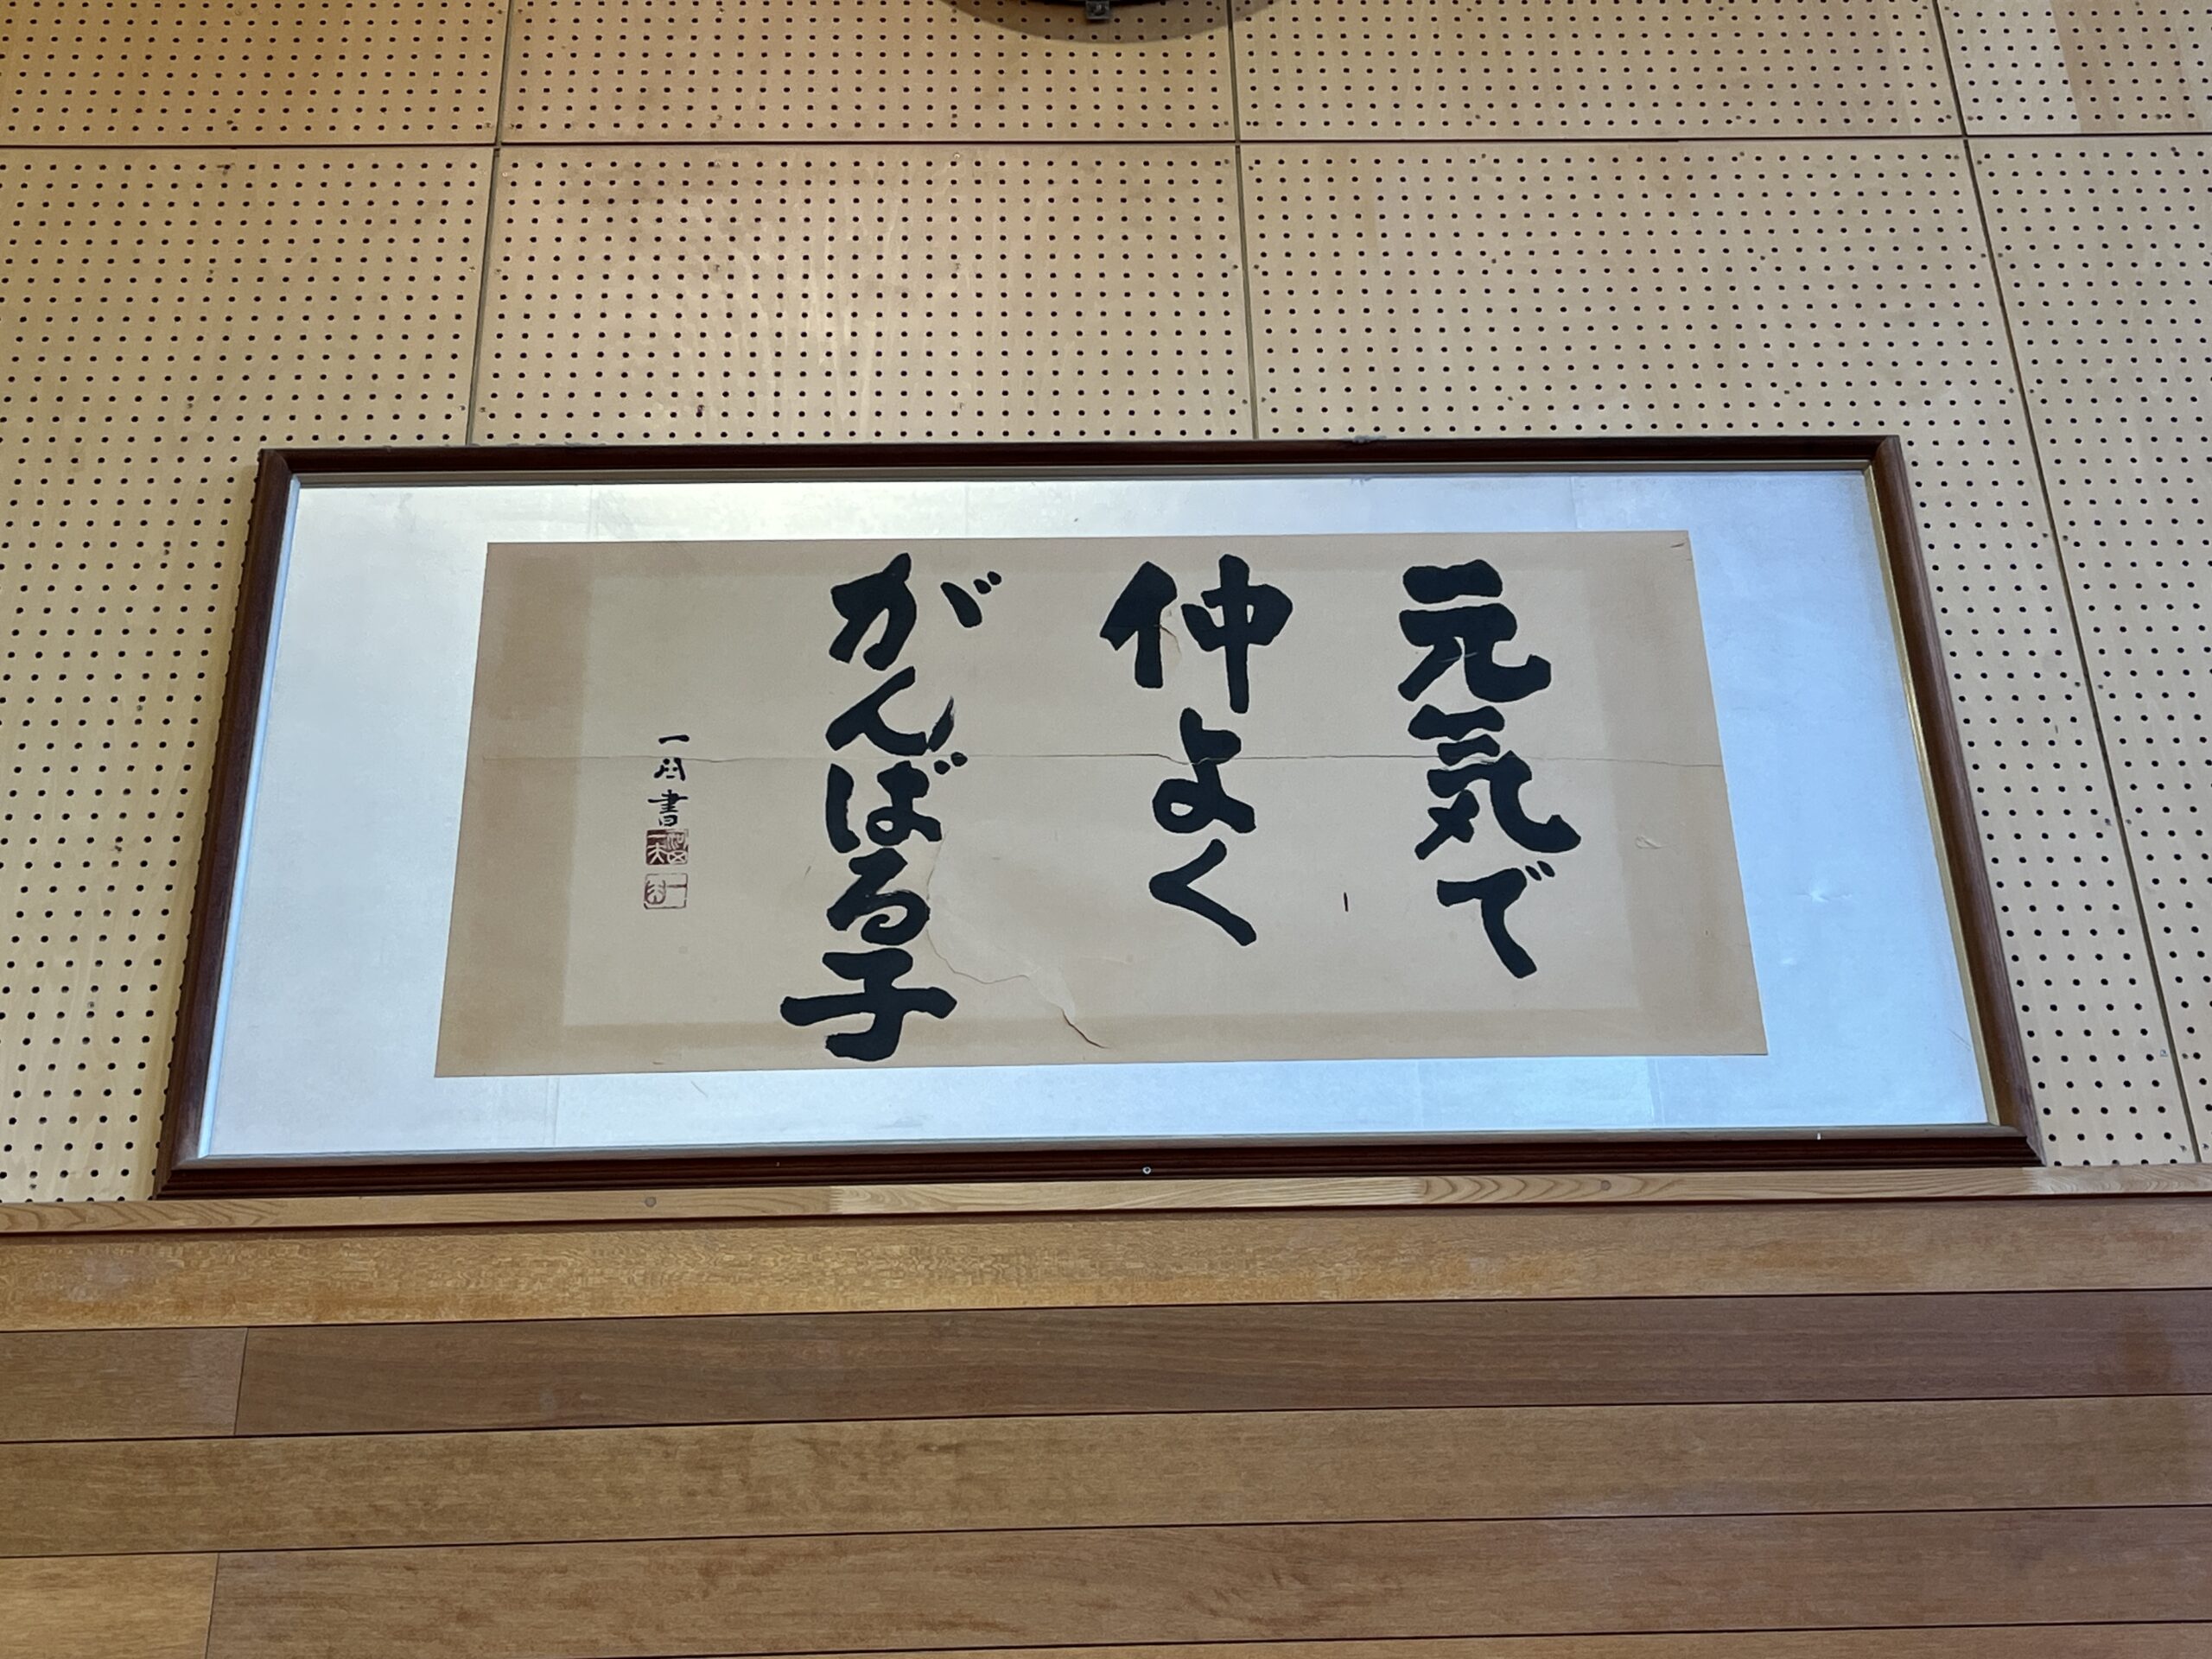 元気で
仲よく
がんばる子
書